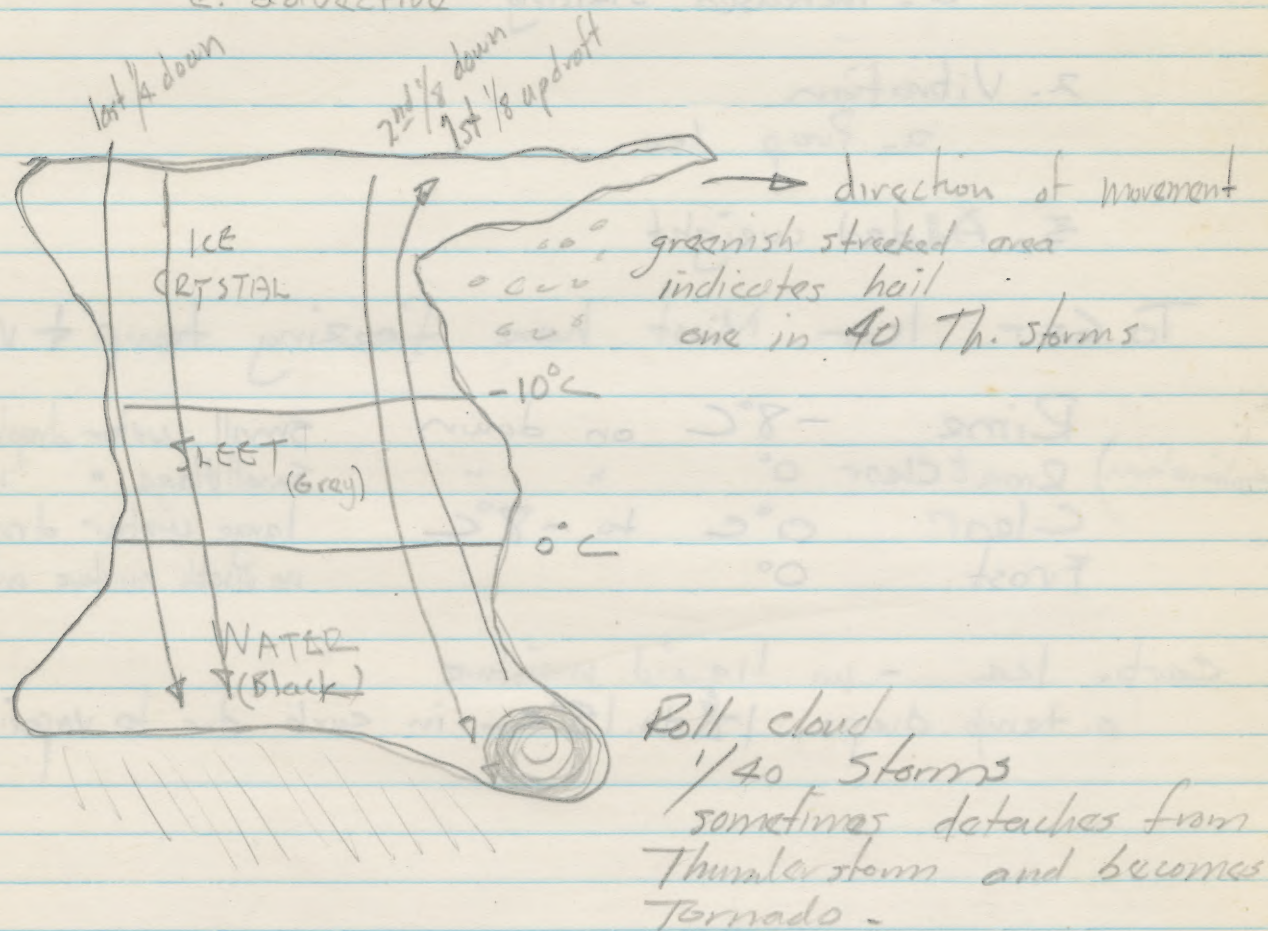 last 1/4 down
2nd 1/8 down
1st 1/8 updraft
direction of movement
ICE
CRYSTAL
greenish streaked area
indicates hail
one in 40 Th. storms
-10°C
SLEET
(Grey)
0°C
WATER
(Black)
Roll cloud
1/40 Storms
sometimes detaches from
Thunderstorm and becomes
Tornado.